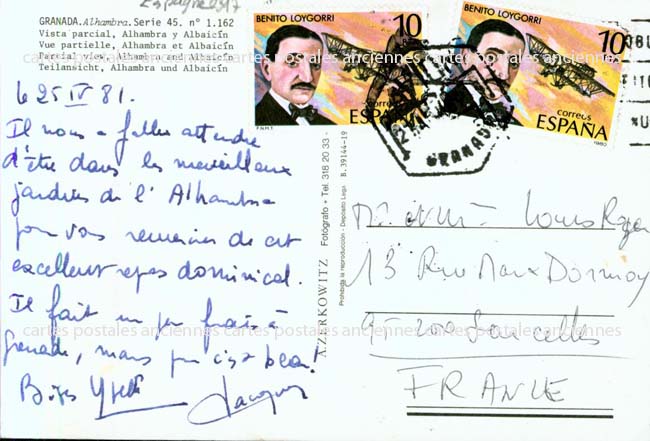 GRANADA. Alhambra. Serie 45. nº 1.162
Vista parcial, Alhambra y Albaicín
Vue partielle, Alhambra et Albaicín
Parcial view, Alhambra and Albaicín
Teilansicht, Alhambra und Albaicín
le 25 IV 81.
Il nous a fallu attendre
d'être dans les merveilleux
jardins de l'Alhambra
pour vous remercier de cet
excellent repas dominical.
Il fait un peu frais à
grenade, mais que c'est beau!
Bises
Jacques
A. ZERKOWITZ Fotógrafo - Tel. 318 20 33 - B. 39144-19
Prohibida la reproducción - Depósito Lega
BENITO LOYGORRI
10
correos
ESPAÑA
F.N.M.T.
BENITO LOYGORRI
10
correos
ESPAÑA
1980
GRANADA
Louis Roger
13 Rue Marx Dormoy
95200 Sarcelles
FRANCE
cartes postales anciennes cartes postales anciennes cartes postales anciennes cartes postales anciennes
cartes postales anciennes cartes postales anciennes cartes postales anciennes cartes postales anciennes